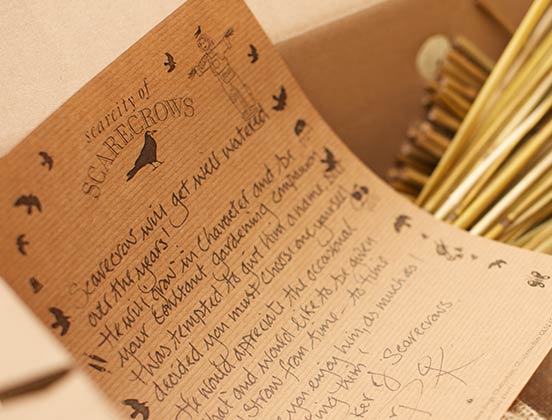 scarcity of
SCARECROWS
Scarecrow will get well watered
over the years!
He will grow in character and be
your constant gardening companion
I was tempted to give him a name, but
decided you must choose one yourself
He would appreciate the occasional
hat and would like to be given
straw from time-to time
you enjoy him as much as I
ing him!
of Scarecrows